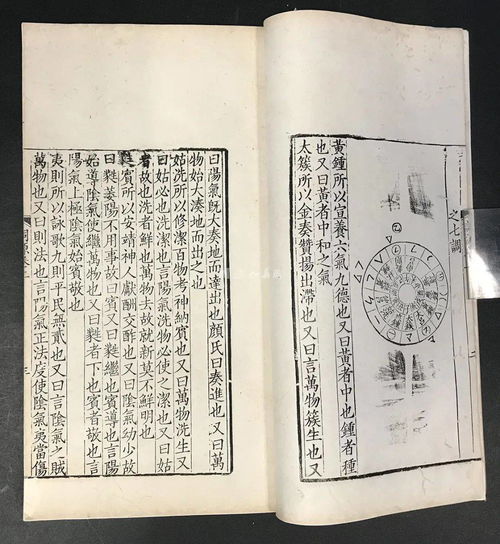 之七調
黃鍾所以宣養六氣九德也又曰黃者中也鍾者種
也又曰黃者中和之氣
太簇所以金奏贊揚出滯也又曰言萬物簇生也又
曰陽氣既大奏地而達出也顏氏曰奏進也又曰萬
物始大湊地而出之也
姑洗所以修潔百物考神納賓也又曰萬物洗生又
曰姑必也洗潔也言陽氣洗物必使之潔也又曰姑
者故也洗者鮮也萬物去故就新莫不鮮明也
蕤賓所以安靖神人獻酬交酢也又曰陰氣幼少故
曰蕤萎陽不用事故曰賓又曰蕤繼也賓導也言陽
始導陰氣使繼萬物也又曰蕤者下也賓者敬也言
陽氣上極陰氣始賓敬也
夷則所以詠歌九則平民無貳也又曰言陰氣之賊
萬物也又曰則法也言陽氣正法度使陰氣夷當傷